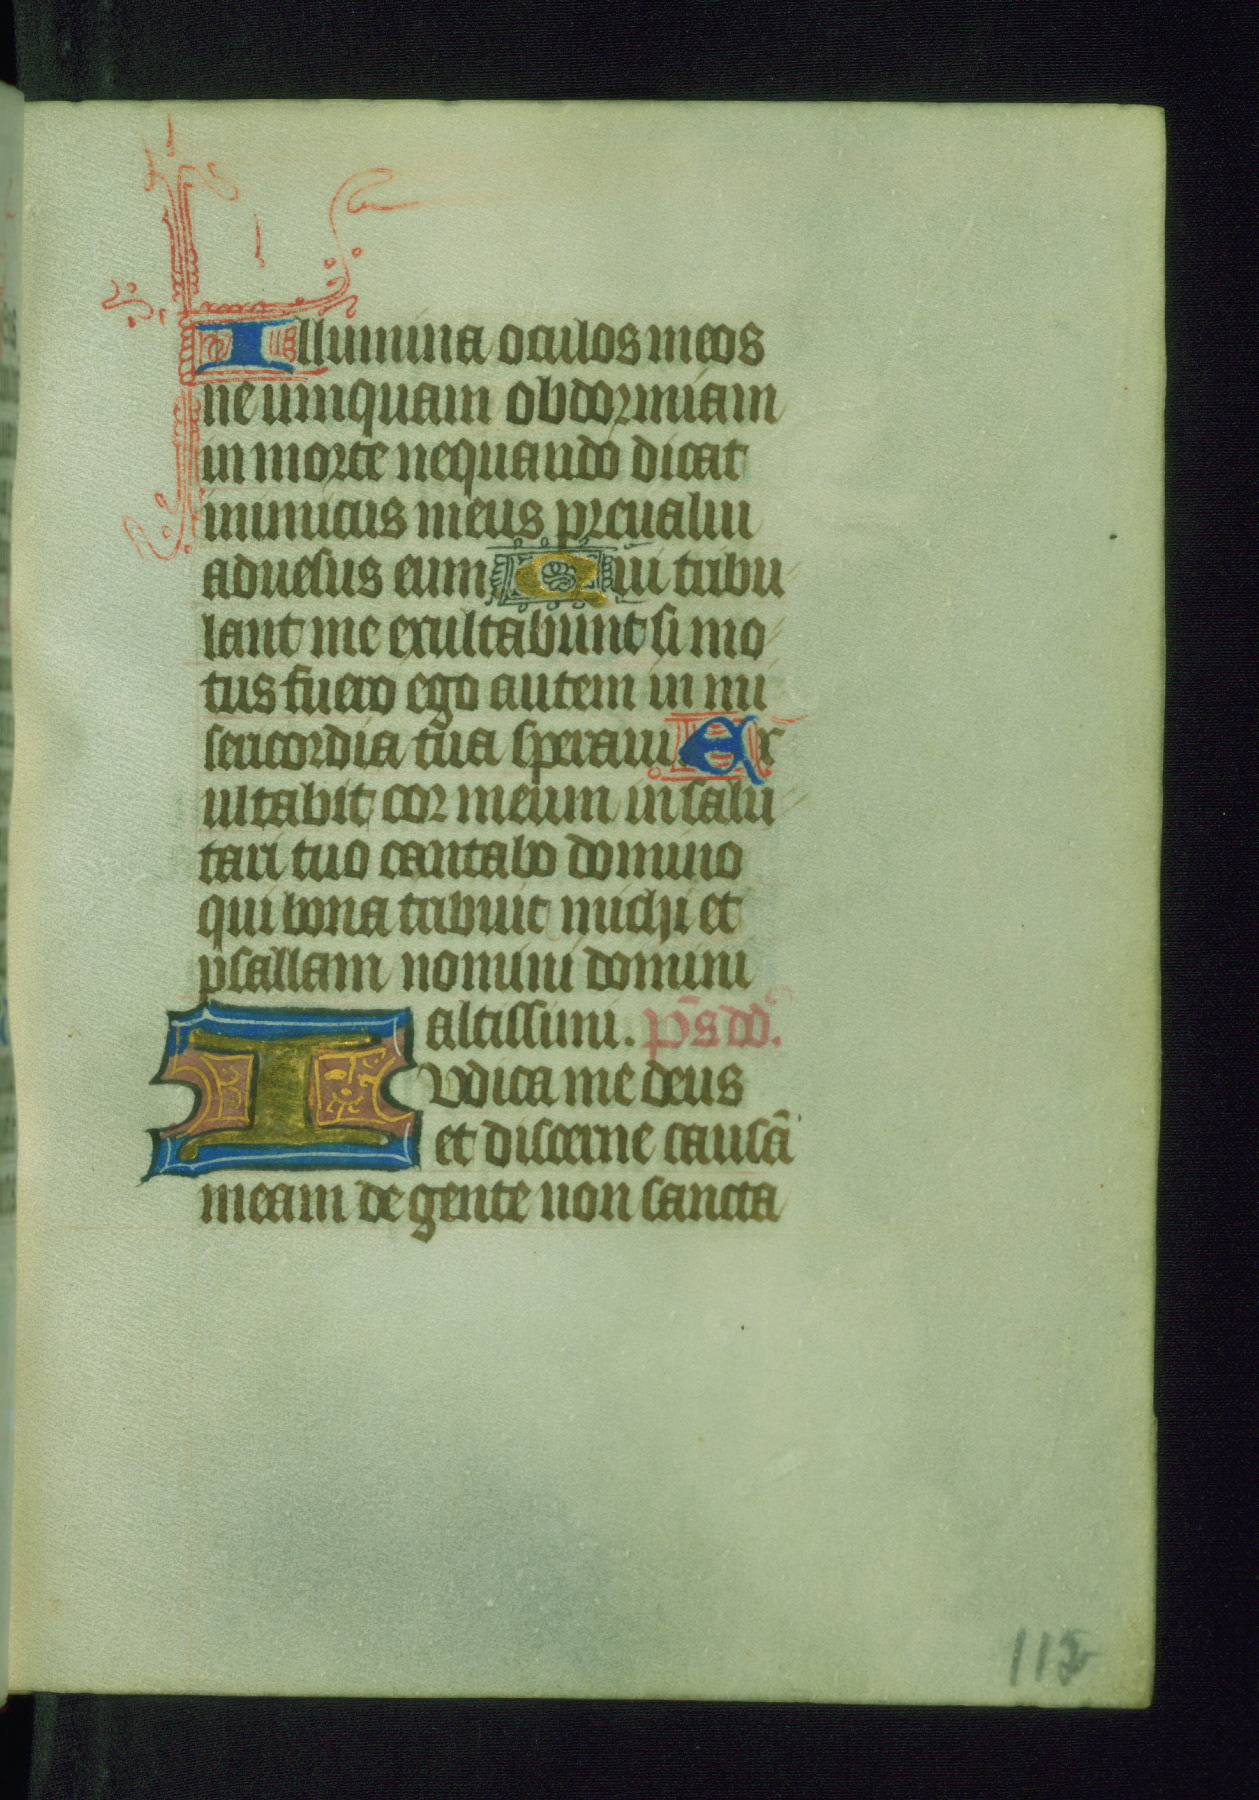 Illumina oculos meos
ne umquam obdormiam
in morte nequando dicat
inimicus meus preualui
aduesus eum Qui tribu
lant me exultabunt si mo
tus fuero ego autem in mi
sericordia tua speraui Ex
ultabit cor meum in salu
tari tuo cantabo domino
qui bona tribuit michi et
psallam nomini domini
altissimi. p̄s dd̄.
Iudica me deus
et discerne causā
meam de gente non sancta